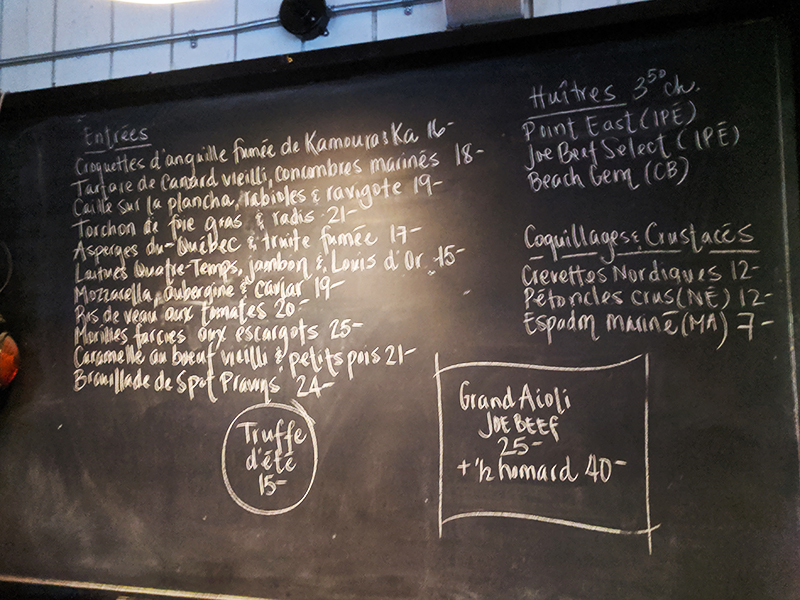 Entrées
Croquettes d'anguille fumée de Kamouraska 16-
Tartare de Canard vieilli, concombres marinés 18-
Caille sur la plancha, rabioles & ravigote 19-
Torchon de foie gras & radis 21-
Asperges du Québec & truite fumée 17-
Laitues Quatre-Temps, jambon & Louis d'Or 15-
Mozzarella, aubergine & caviar 19-
Ris de veau aux tomates 20-
Morilles farcies aux escargots 25-
Caramelle au boeuf vieilli & petits pois 21-
Brouillade de Spot Prawns 24-
Truffe
d'été
15-
Huîtres 3⁵⁰ ch.
Point East (IPÉ)
Joe Beef Select (IPÉ)
Beach Gem (CB)
Coquillages & Crustacés
Crevettes Nordiques 12-
Pétoncles crus (NÉ) 12-
Espadon mariné (MA) 7-
Grand Aioli
JOE BEEF
25-
+ ½ homard 40-